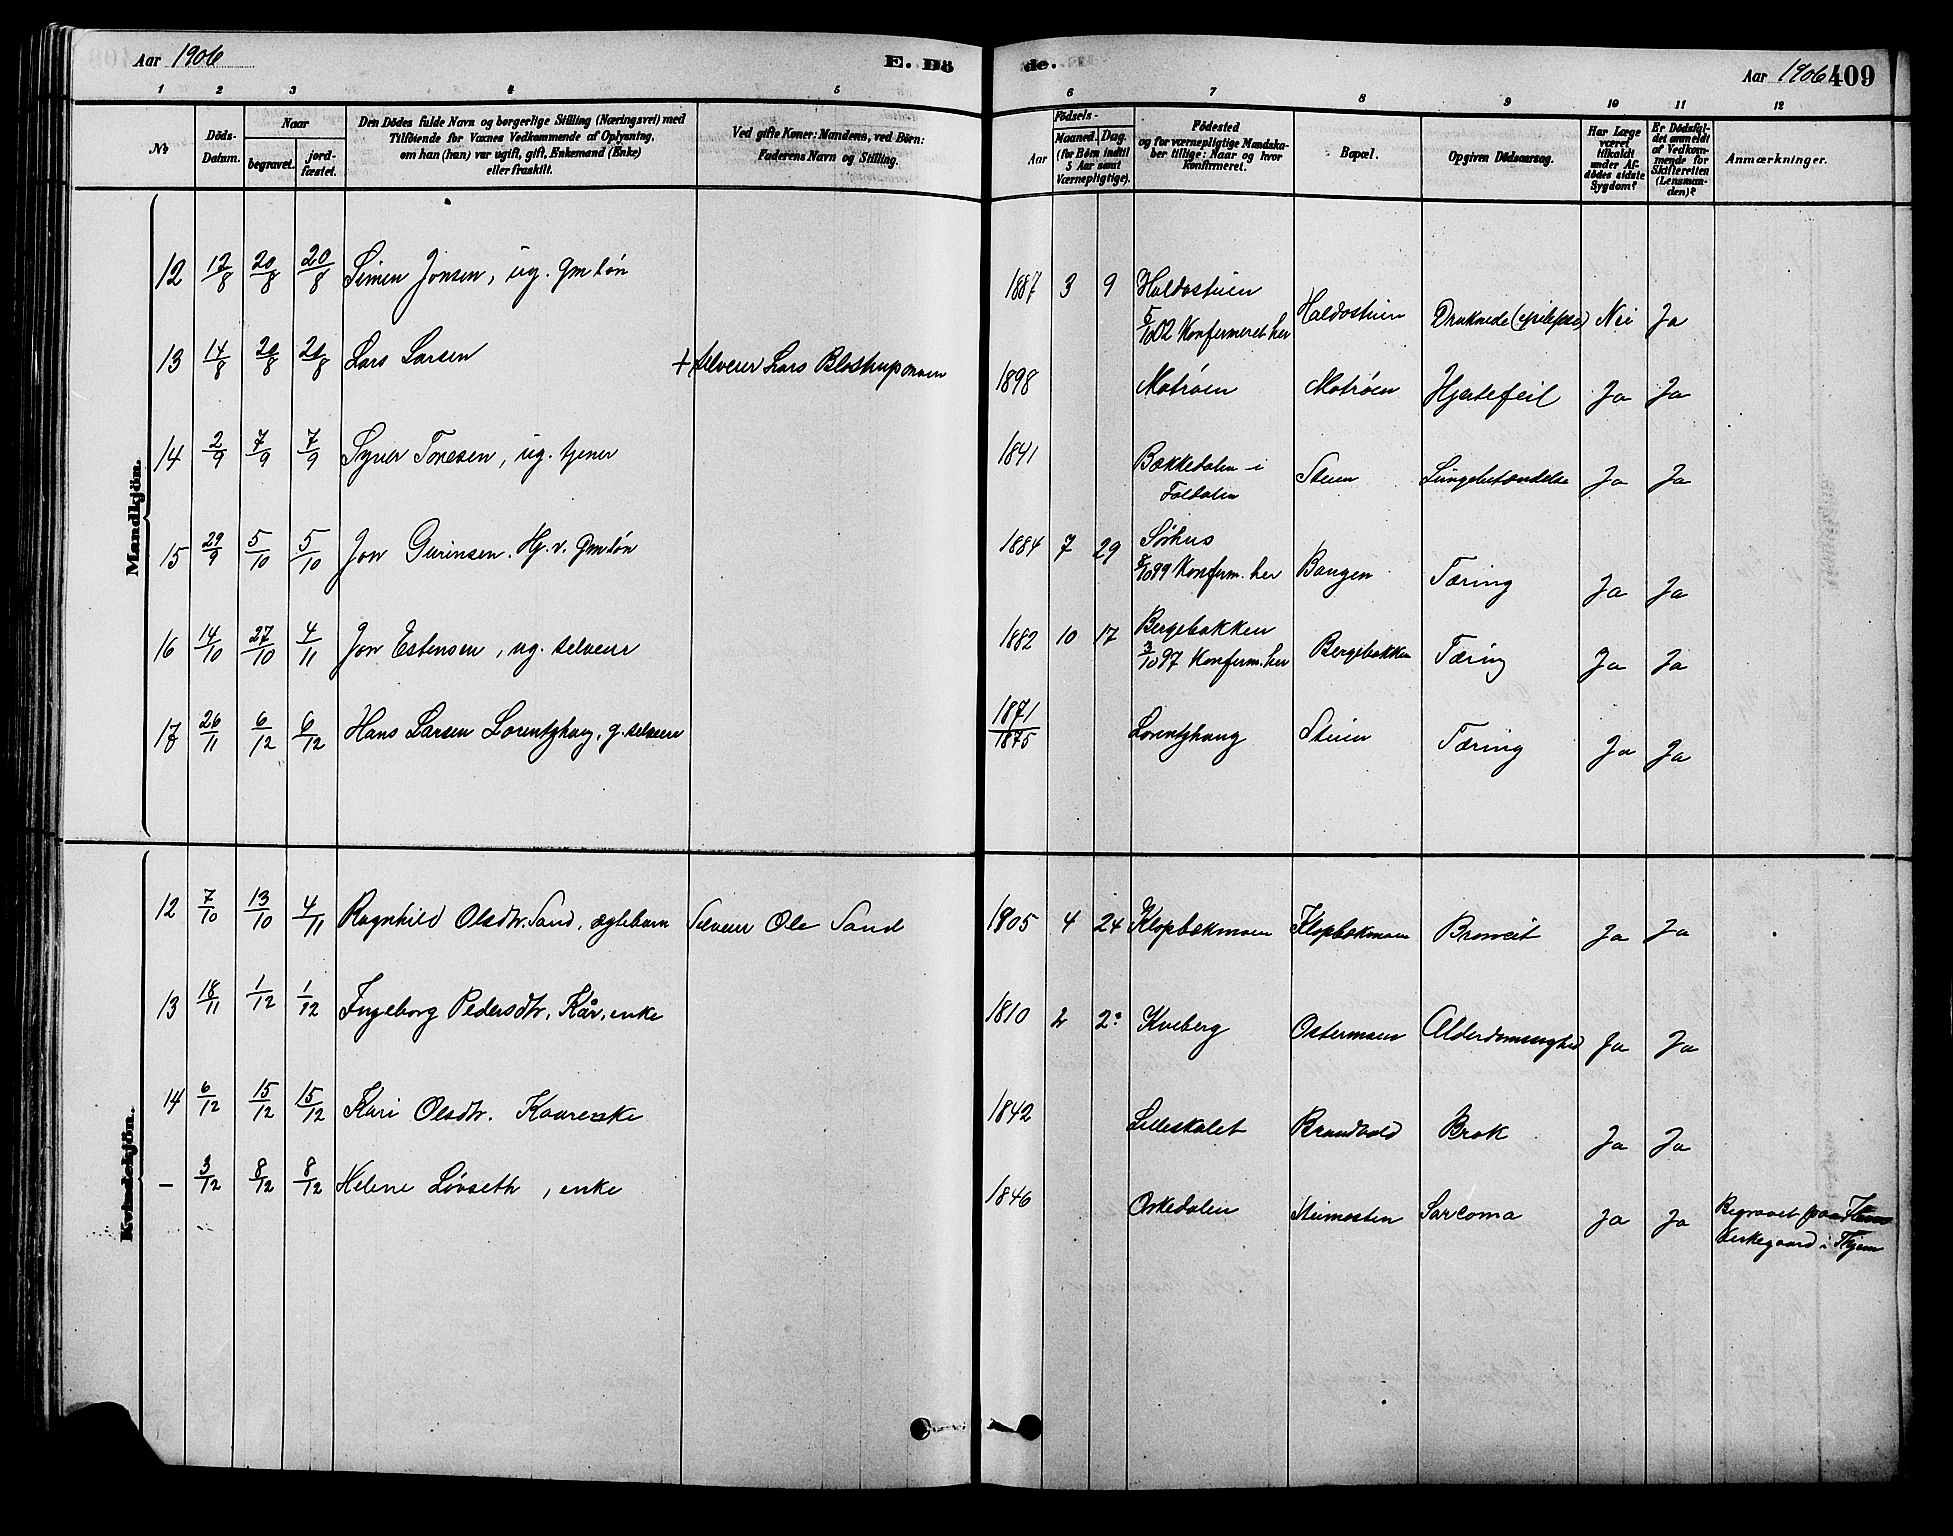 Aar 1906
E. Dö
de.
Aar 1906
409
1 2 3 4 5 6 7 8 9 10 11 12
No
Döds-Datum.
Naar
begravet.
jord-fæstet.
Den Dödes fulde Navn og borgerlige Stilling (Næringsvei) med
Tilföiende for Voxnes Vedkommende af Oplysning,
om han (hun) var ugift, gift, Enkemand (Enke)
eller fraskilt.
Ved gifte Koner: Mandens, ved Börn:
Faderens Navn og Stilling.
Födsels-
Aar
Maaned. Dag.
(for Börn indtil
5 Aar samt
Værnepligtige).
Födested
og for værnepligtige Mandska-
ber tillige: Naar og hvor
Konfirmeret.
Bopæl.
Opgiven Dödsaarsag.
Har Læge
været
tilkaldt
under Af-
dödes sidste
Sygdom?
Er Dödsfal-
det anmeldt
af Vedkom-
mende for
Skifteretten
(Lensman-
den)?
Anmærkninger.
Mandkjön.
12 12/8 20/8 20/8 Simen Jonsen, ug. gm søn 1887 3 9 Haldostuen
5/10 02 Konfirmeret her Haldostuen Druknede (epilepsi) Nei Ja
13 14/8 20/8 20/8 Lars Larsen + selveier Lars Blostrupmoen 1898 Motrøen Motrøen Hjertefeil Ja Ja
14 2/9 7/9 7/9 Syver Toresen, ug. tjener 1841 Bækkedalen i
Foldalen Steien Lungebetændelse Ja Ja
15 29/9 5/10 5/10 Jon Gurinsen. Hj. v. gm søn 1884 7 29 Sørhus
8/10 99 Konfirm. her Bangen Tæring Ja Ja
16 14/10 27/10 4/11 Jon Estensen, ug. selveier 1882 10 17 Bergebakken
3/10 97 Konfirm. her Bergebakken Tæring Ja Ja
17 26/11 6/12 6/12 Hans Larsen Lorentzhaug, g. selveier 1871/1875 Lorentzhaug Steien Tæring Ja Ja
Kvindekjön.
12 7/10 13/10 4/11 Ragnhild Olsdtr. Sand, ægtebarn Selveier Ole Sand 1905 4 24 Klopbækmoen Klopbækmoen Ja Ja
13 18/11 1/12 1/12 Ingeborg Pedersdtr. Kår, enke 1810 2 Kveberg Ostermoen Ja Ja
14 6/12 15/12 15/12 Kari Olsdtr. Kaarenke 1842 Lilleskalet Brandvold Brok Ja Ja
– 3/12 8/12 8/12 Helene Løvseth, enke 1846 Orkedalen Sarcoma Ja Ja Begravet paa
Kirkegaard i